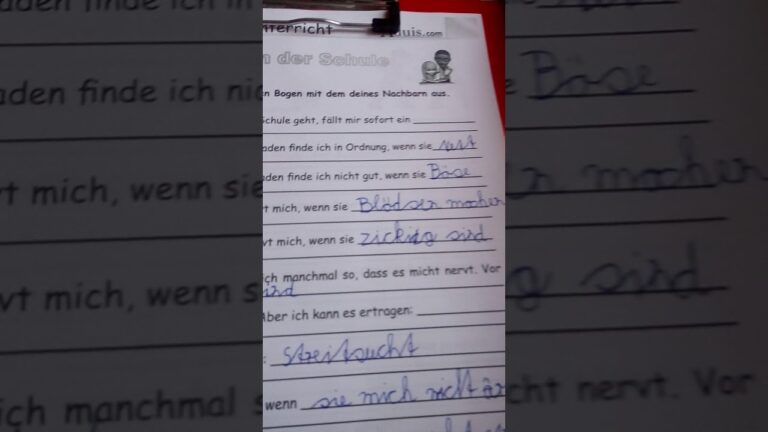 terricht
uis.com
n der Schule
n Bogen mit dem deines Nachbarn aus.
Schule geht, fällt mir sofort ein
aden finde ich in Ordnung, wenn sie
aden finde ich nicht gut, wenn sie Böse
t mich, wenn sie Blödsen machen
vt mich, wenn sie zickig sind
ich manchmal so, dass es micht nervt. Vor
sind
Aber ich kann es ertragen:
: Streitsucht
wenn sie mich nicht är